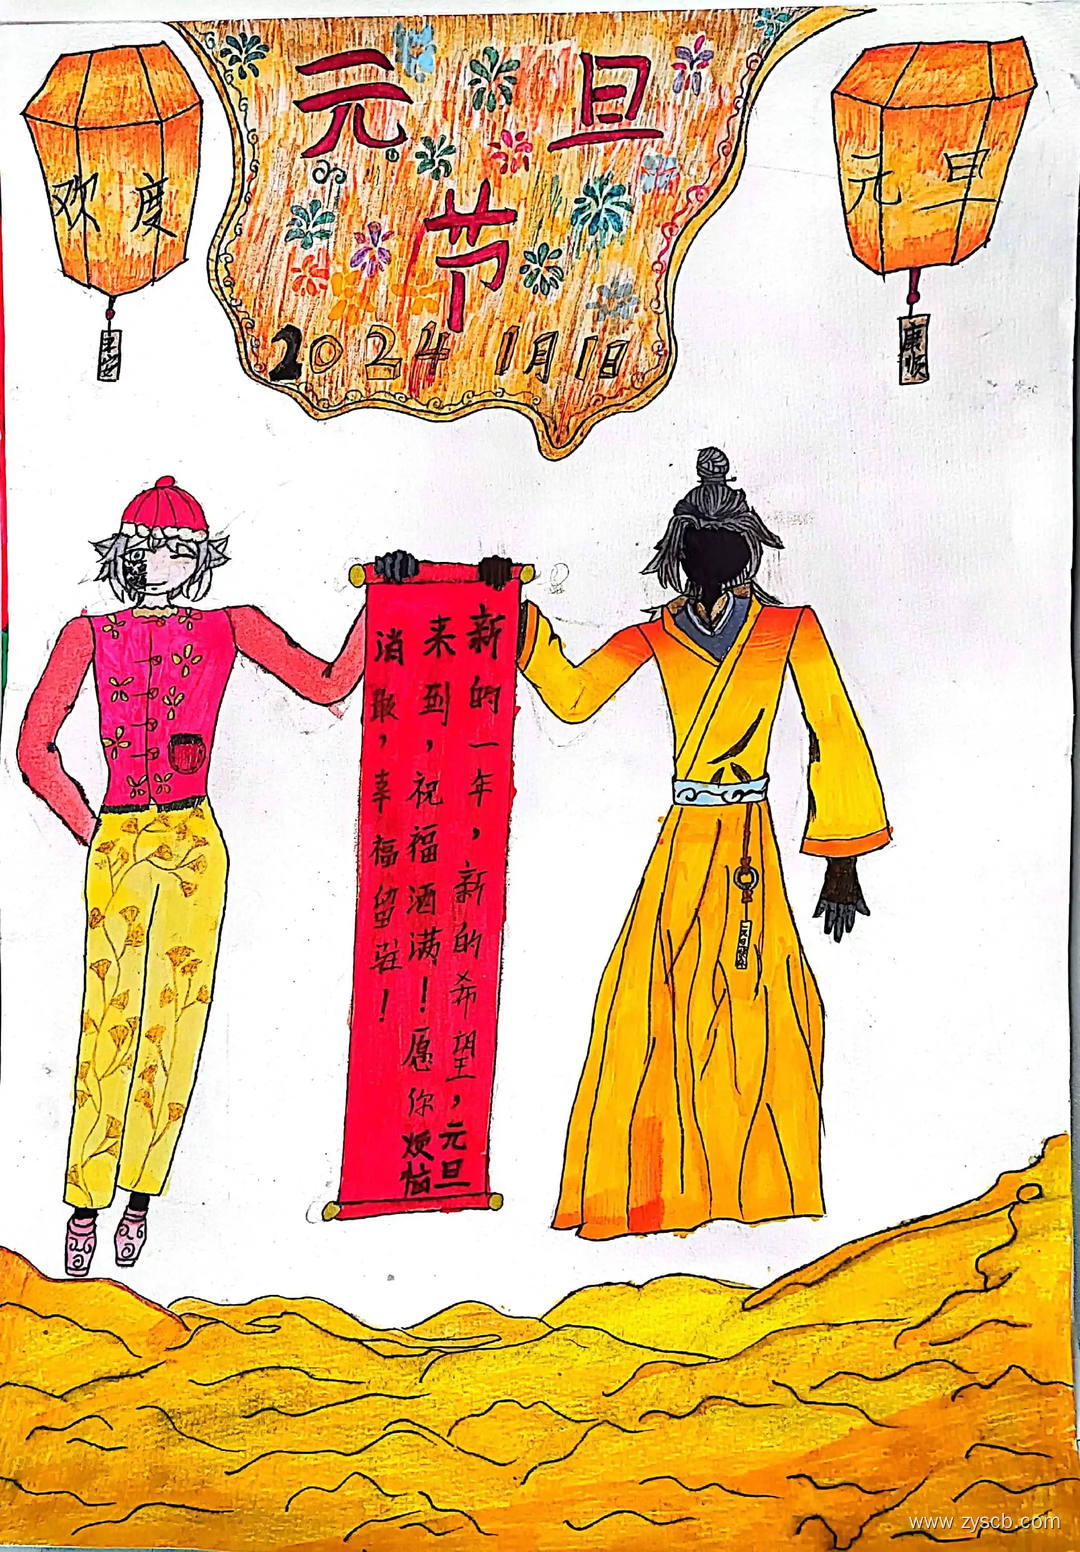 欢度
元旦
节
2024 1月1日
元旦
平安
康顺
新的一年，新的希望，元旦
来到，祝福酒满！愿你烦恼
消散，幸福留驻！
元旦快乐
www.zyscb.com